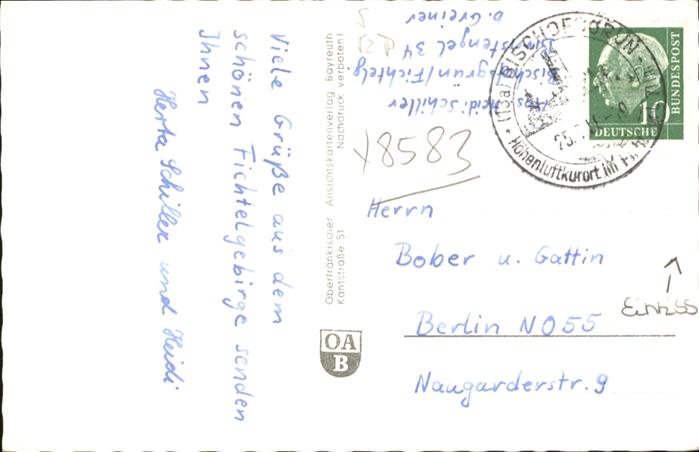 Viele Grüße aus dem
schönen Fichtelgebirge senden
Ihnen
Herta Schiller und Heidi
Oberfränkischer Ansichtskartenverlag Bayreuth
Kantstraße 51 Nachdruck verboten!
OA
B
Abs. Heidi Schiller
Bischofsgrün/Fichtelg
34
b. Greiner
BISCHOFSGRÜN
Höhenluftkurort im
10
DEUTSCHE
BUNDESPOST
8583
Herrn
Bober u. Gattin
Berlin NO55
Naugarderstr. 9
Einriss